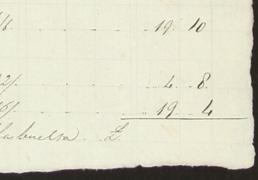 /. 19. 10
2/. 4. 8.
6/. 19. 4
£.